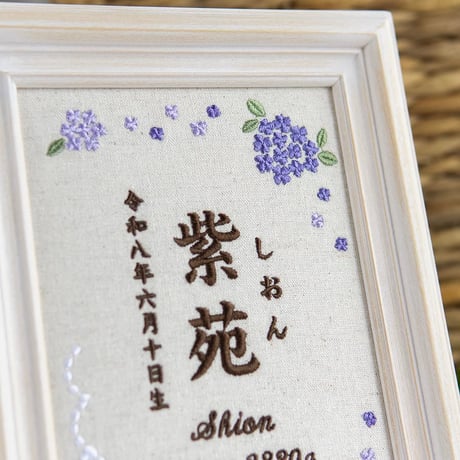 しおん
紫苑
令和八年六月十日生
Shion